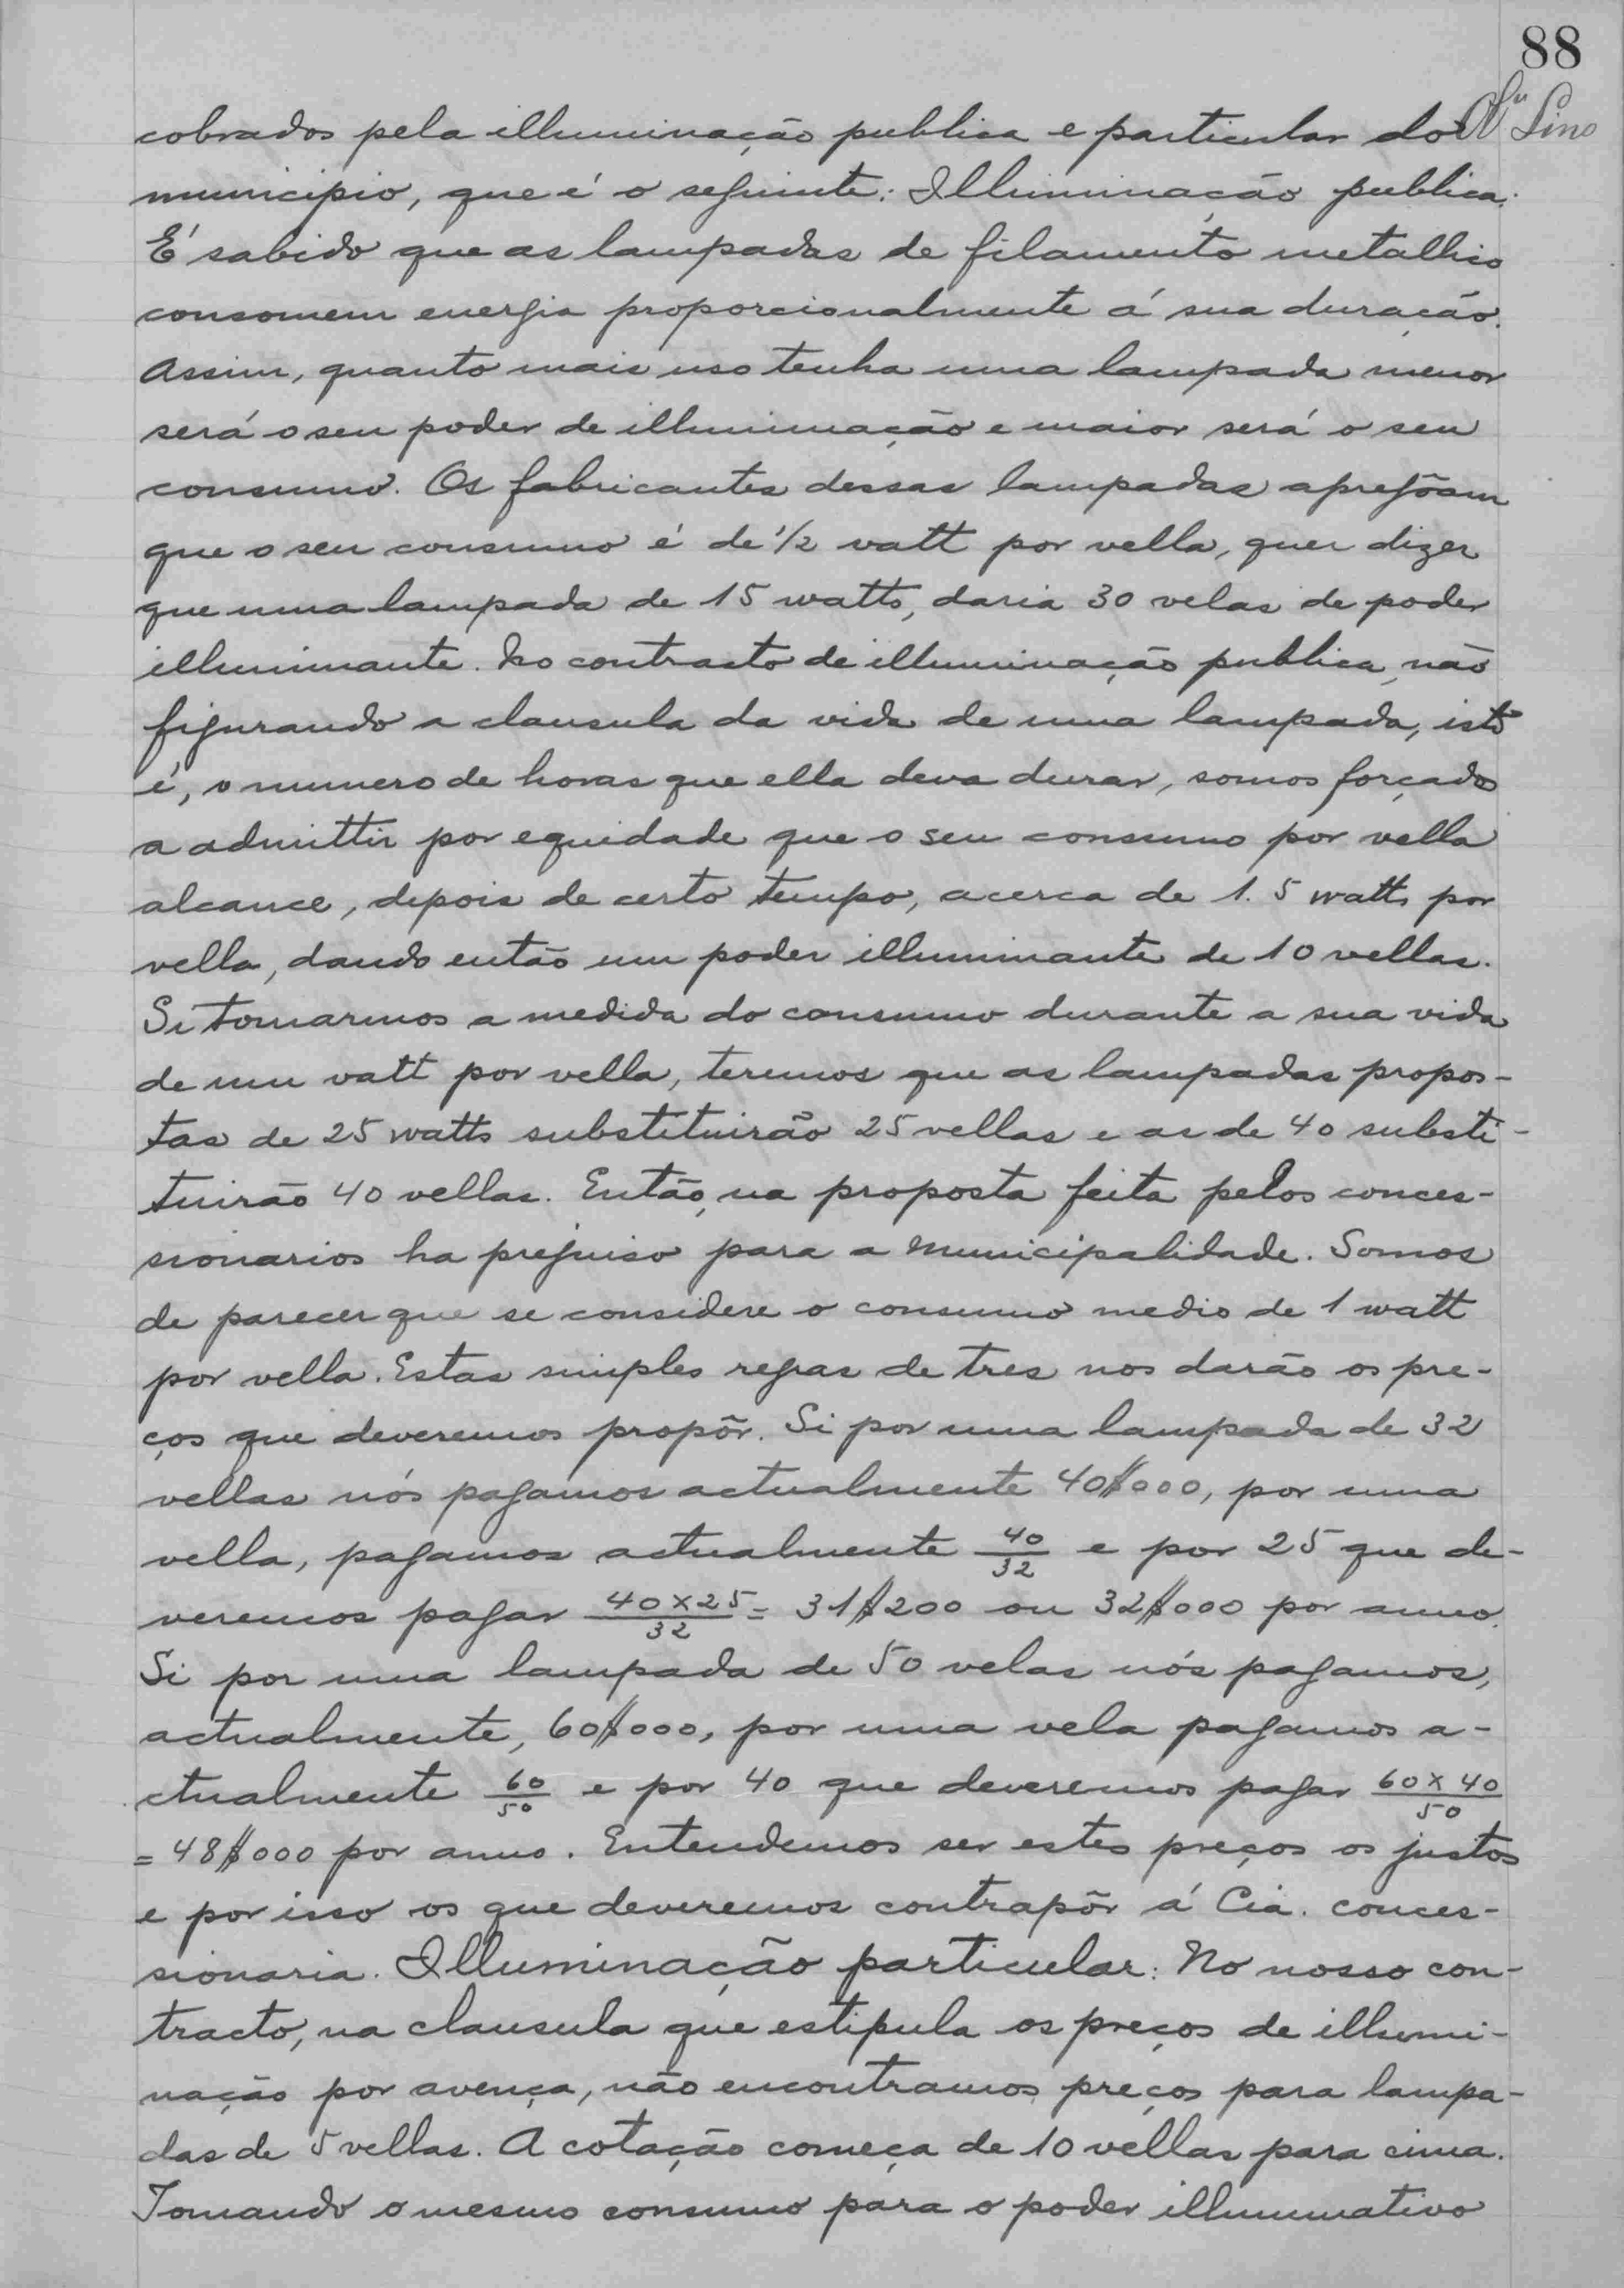 88
cobrados pela illuminação publica e particular do Lino
municipio, que é o seguinte: Illuminação publica:
É sabido que as lampadas de filamento metallico
consomem energia proporcionalmente á sua duração.
Assim, quanto mais uso tenha uma lampada menor
será o seu poder de illuminação e maior será o seu
consumo. Os fabricantes dessas lampadas apregôam
que o seu consumo é de ½ vatt por vella, quer dizer
que uma lampada de 15 watts, daria 30 velas de poder
illuminante. No contracto de illuminação publica, não
figurando a clausula da vida de uma lampada, isto
é, o numero de horas que ella deva durar, somos forçados
a admittir por equidade que o seu consumo por vella
alcance, depois de certo tempo, acerca de 1.5 watts por
vella, dando então um poder illuminante de 10 vellas.
Si tomarmos a medida do consumo durante a sua vida
de um vatt por vella, teremos que as lampadas propos-
tas de 25 watts substituirão 25 vellas e as de 40 substi-
tuirão 40 vellas. Então, na proposta feita pelos conces-
sionarios ha prejuiso para a Municipalidade. Somos
de parecer que se considere o consumo medio de 1 watt
por vella. Estas simples regras de tres nos darão os pre-
ços que deveremos propôr. Si por uma lampada de 32
vellas nós pagamos actualmente 40$000, por uma
vella, pagamos actualmente 40/32 e por 25 que de-
veremos pagar 40x25/32 = 31$200 ou 32$000 por anno.
Si por uma lampada de 50 velas nós pagamos,
actualmente, 60$000, por uma vela pagamos a-
ctualmente 60/50 e por 40 que deveremos pagar 60x40/50
= 48$000 por anno. Entendemos ser estes preços os justos
e por isso os que deveremos contrapôr á Cia. conces-
sionaria. Illuminação particular: No nosso con-
tracto, na clausula que estipula os preços de illumi-
nação por avença, não encontramos preços para lampa-
das de 5 vellas. A cotação começa de 10 vellas para cima.
Tomando o mesmo consumo para o poder illuminativo